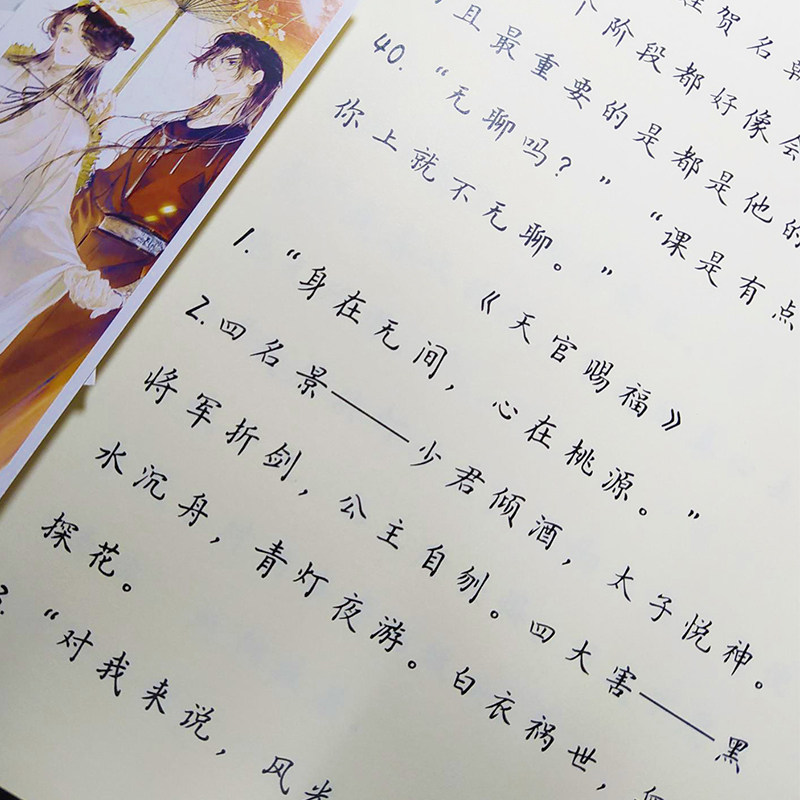 贺名朝
个阶段都好像会
且最重要的是都是他的
40. “无聊吗？” “课是有点
你上就不无聊。”
《天官赐福》
1. “身在无间，心在桃源。”
2.四名景——少君倾酒，太子悦神。
将军折剑，公主自刎。四大害——黑
水沉舟，青灯夜游。白衣祸世，
探花。
3. “对我来说，风